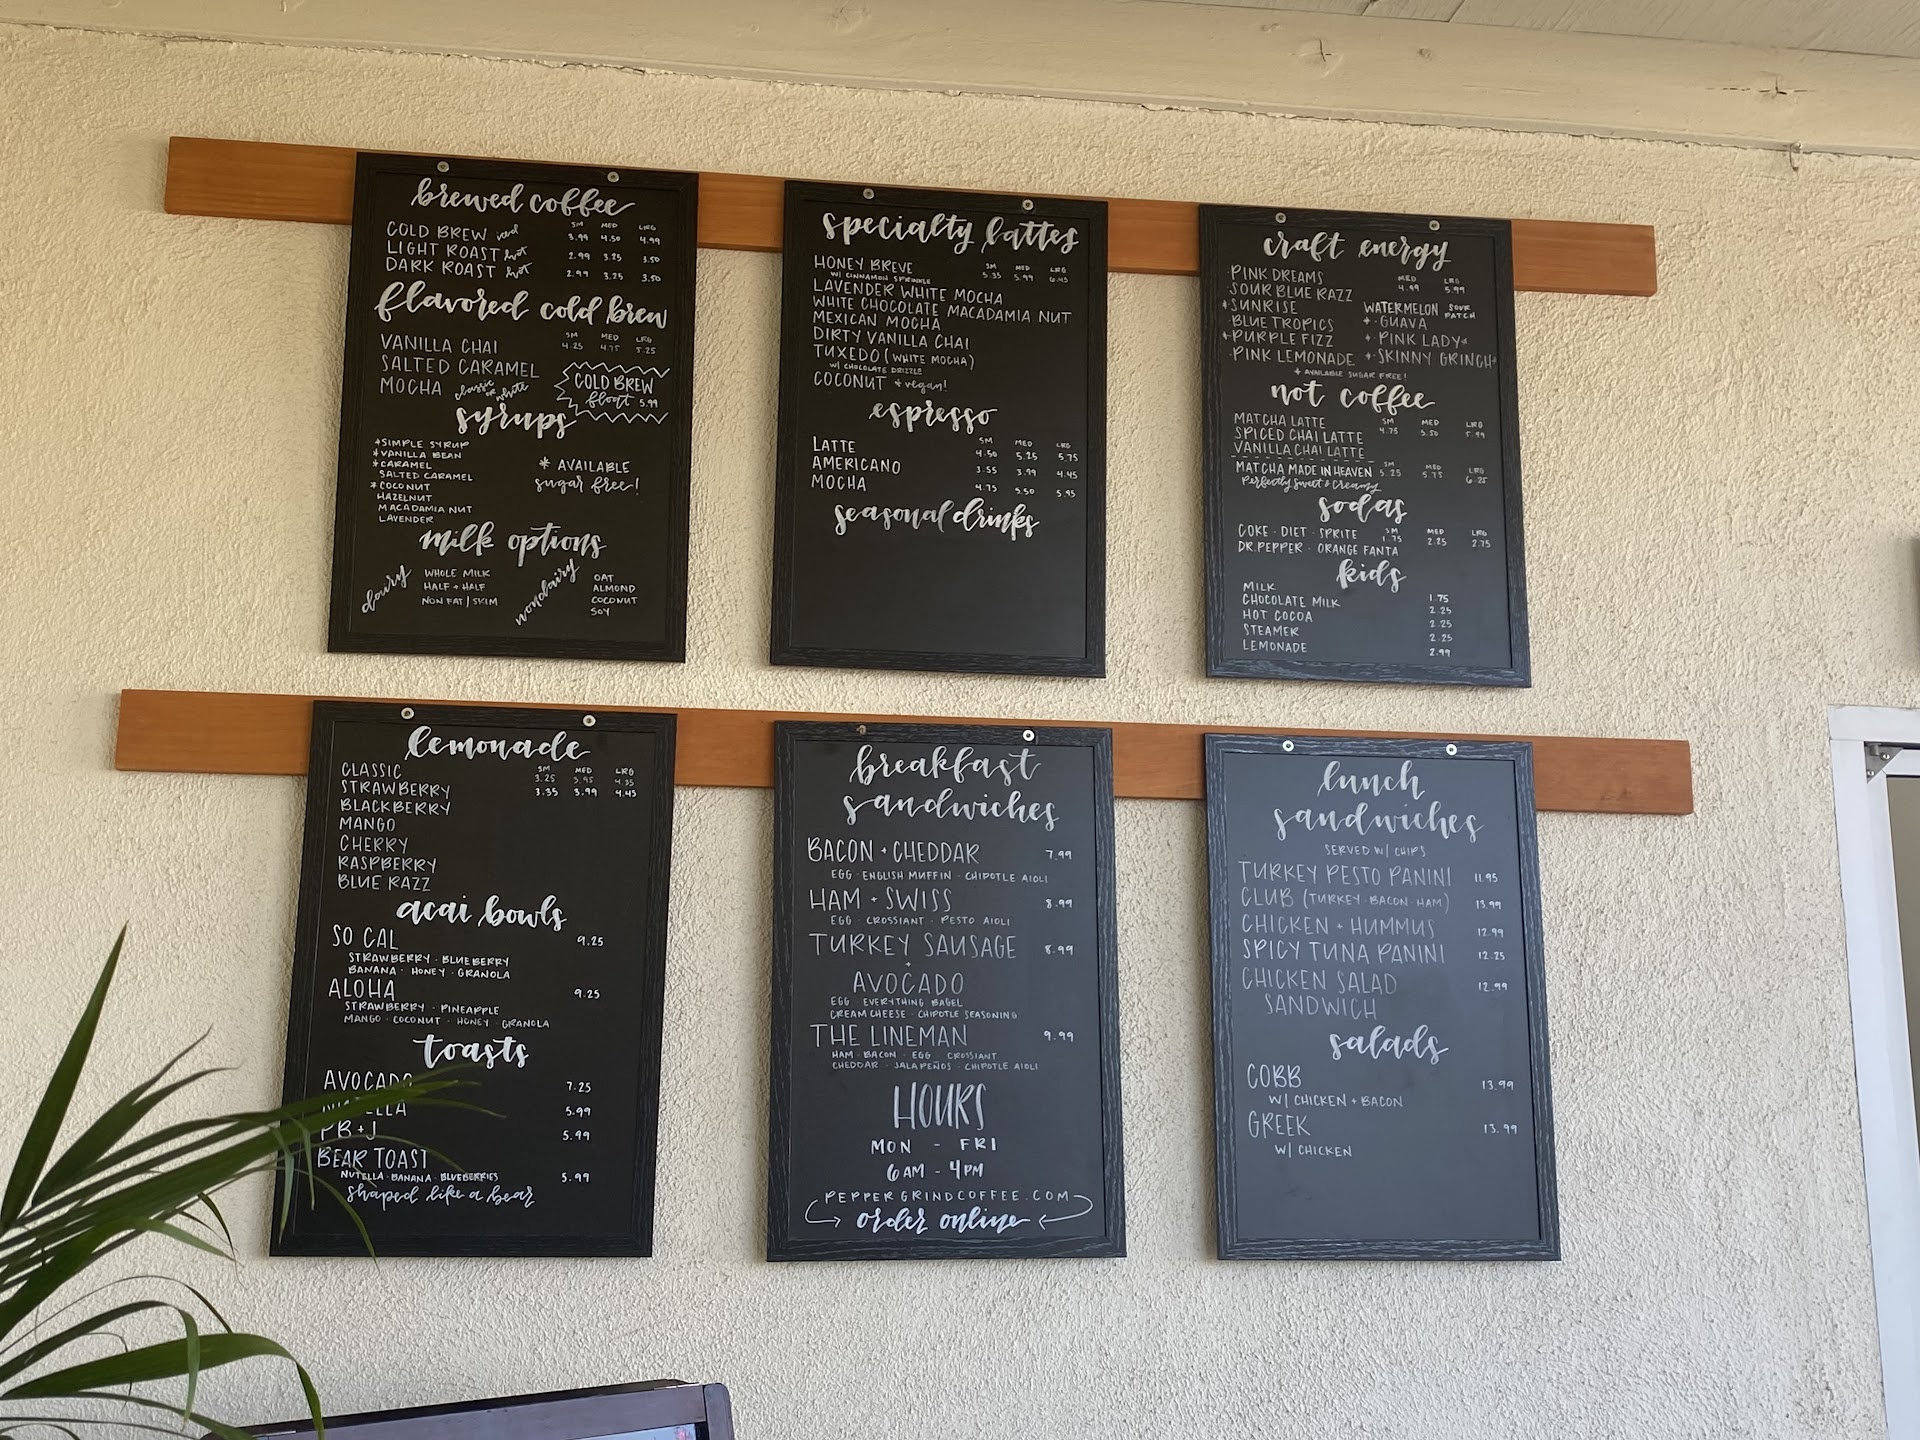 brewed coffee
SM MED LRG
COLD BREW iced 3.99 4.50 4.99
LIGHT ROAST hot 2.99 3.25 3.50
DARK ROAST hot 2.99 3.25 3.50
flavored cold brew
SM MED LRG
VANILLA CHAI 4.25 4.75 5.25
SALTED CARAMEL
MOCHA classic or white
COLD BREW
float 5.99
syrups
*SIMPLE SYRUP
*VANILLA BEAN
*CARAMEL
SALTED CARAMEL
*COCONUT
HAZELNUT
MACADAMIA NUT
LAVENDER
* AVAILABLE
sugar free!
milk options
dairy
WHOLE MILK
HALF + HALF
NON FAT | SKIM
nondairy
OAT
ALMOND
COCONUT
SOY
specialty lattes
SM MED LRG
HONEY BREVE 5.35 5.99 6.45
W/ CINNAMON SPRINKLE
LAVENDER WHITE MOCHA
WHITE CHOCOLATE MACADAMIA NUT
MEXICAN MOCHA
DIRTY VANILLA CHAI
TUXEDO (WHITE MOCHA)
W/ CHOLOLATE DRIZZLE
COCONUT *vegan!
espresso
SM MED LRG
LATTE 4.50 5.25 5.75
AMERICANO 3.55 3.99 4.45
MOCHA 4.75 5.50 5.95
seasonal drinks
craft energy
MED LRG
4.99 5.99
·PINK DREAMS
·SOUR BLUE RAZZ
*·SUNRISE
·BLUE TROPICS
*·PURPLE FIZZ
·PINK LEMONADE
WATERMELON SOUR PATCH
*·GUAVA
*·PINK LADY*
*·SKINNY GRINCH*
* AVAILABLE SUGAR FREE!
not coffee
SM MED LRG
MATCHA LATTE 4.75 5.50 5.99
SPICED CHAI LATTE
VANILLA CHAI LATTE
SM MED LRG
MATCHA MADE IN HEAVEN 5.25 5.75 6.25
Perfectly Sweet & Creamy
sodas
SM MED LRG
COKE · DIET · SPRITE 1.75 2.25 2.75
DR.PEPPER · ORANGE FANTA
kids
MILK
CHOCOLATE MILK 1.75
HOT COCOA 2.25
STEAMER 2.25
LEMONADE 2.25
2.99
lemonade
SM MED LRG
CLASSIC 3.25 3.95 4.35
STRAWBERRY 3.35 3.99 4.45
BLACKBERRY
MANGO
CHERRY
RASPBERRY
BLUE RAZZ
acai bowls
SO CAL 9.25
STRAWBERRY · BLUEBERRY
BANANA · HONEY · GRANOLA
ALOHA 9.25
STRAWBERRY · PINEAPPLE
MANGO · COCONUT · HONEY · GRANOLA
toasts
AVOCADO 7.25
NUTELLA 5.99
PB+J 5.99
BEAR TOAST
NUTELLA · BANANA · BLUEBERRIES 5.99
shaped like a bear
breakfast
sandwiches
BACON + CHEDDAR 7.99
EGG · ENGLISH MUFFIN · CHIPOTLE AIOLI
HAM + SWISS 8.99
EGG · CROSSIANT · PESTO AIOLI
TURKEY SAUSAGE 8.99
+
AVOCADO
EGG · EVERYTHING BAGEL
CREAM CHEESE · CHIPOTLE SEASONING
THE LINEMAN 9.99
HAM · BACON · EGG · CROSSIANT
CHEDDAR · JALAPEÑOS · CHIPOTLE AIOLI
HOURS
MON - FRI
6AM - 4PM
PEPPERGRINDCOFFEE.COM
order online
lunch
sandwiches
SERVED W/ CHIPS
TURKEY PESTO PANINI 11.95
CLUB (TURKEY · BACON · HAM) 13.99
CHICKEN + HUMMUS 12.99
SPICY TUNA PANINI 12.25
CHICKEN SALAD 12.99
SANDWICH
salads
COBB 13.99
W/ CHICKEN + BACON
GREEK 13.99
W/ CHICKEN